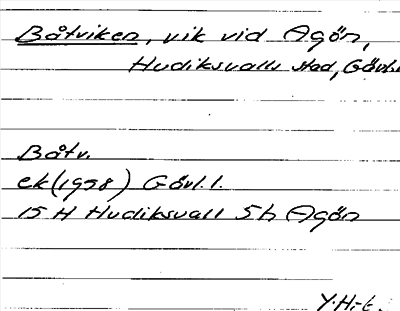 Båtviken, vik vid Agön,
Hudiksvalls stad, Gävl.
Båtv.
ek (1958) Gävl. l.
15 H Hudiksvall 5h Agön
Y. H-t.